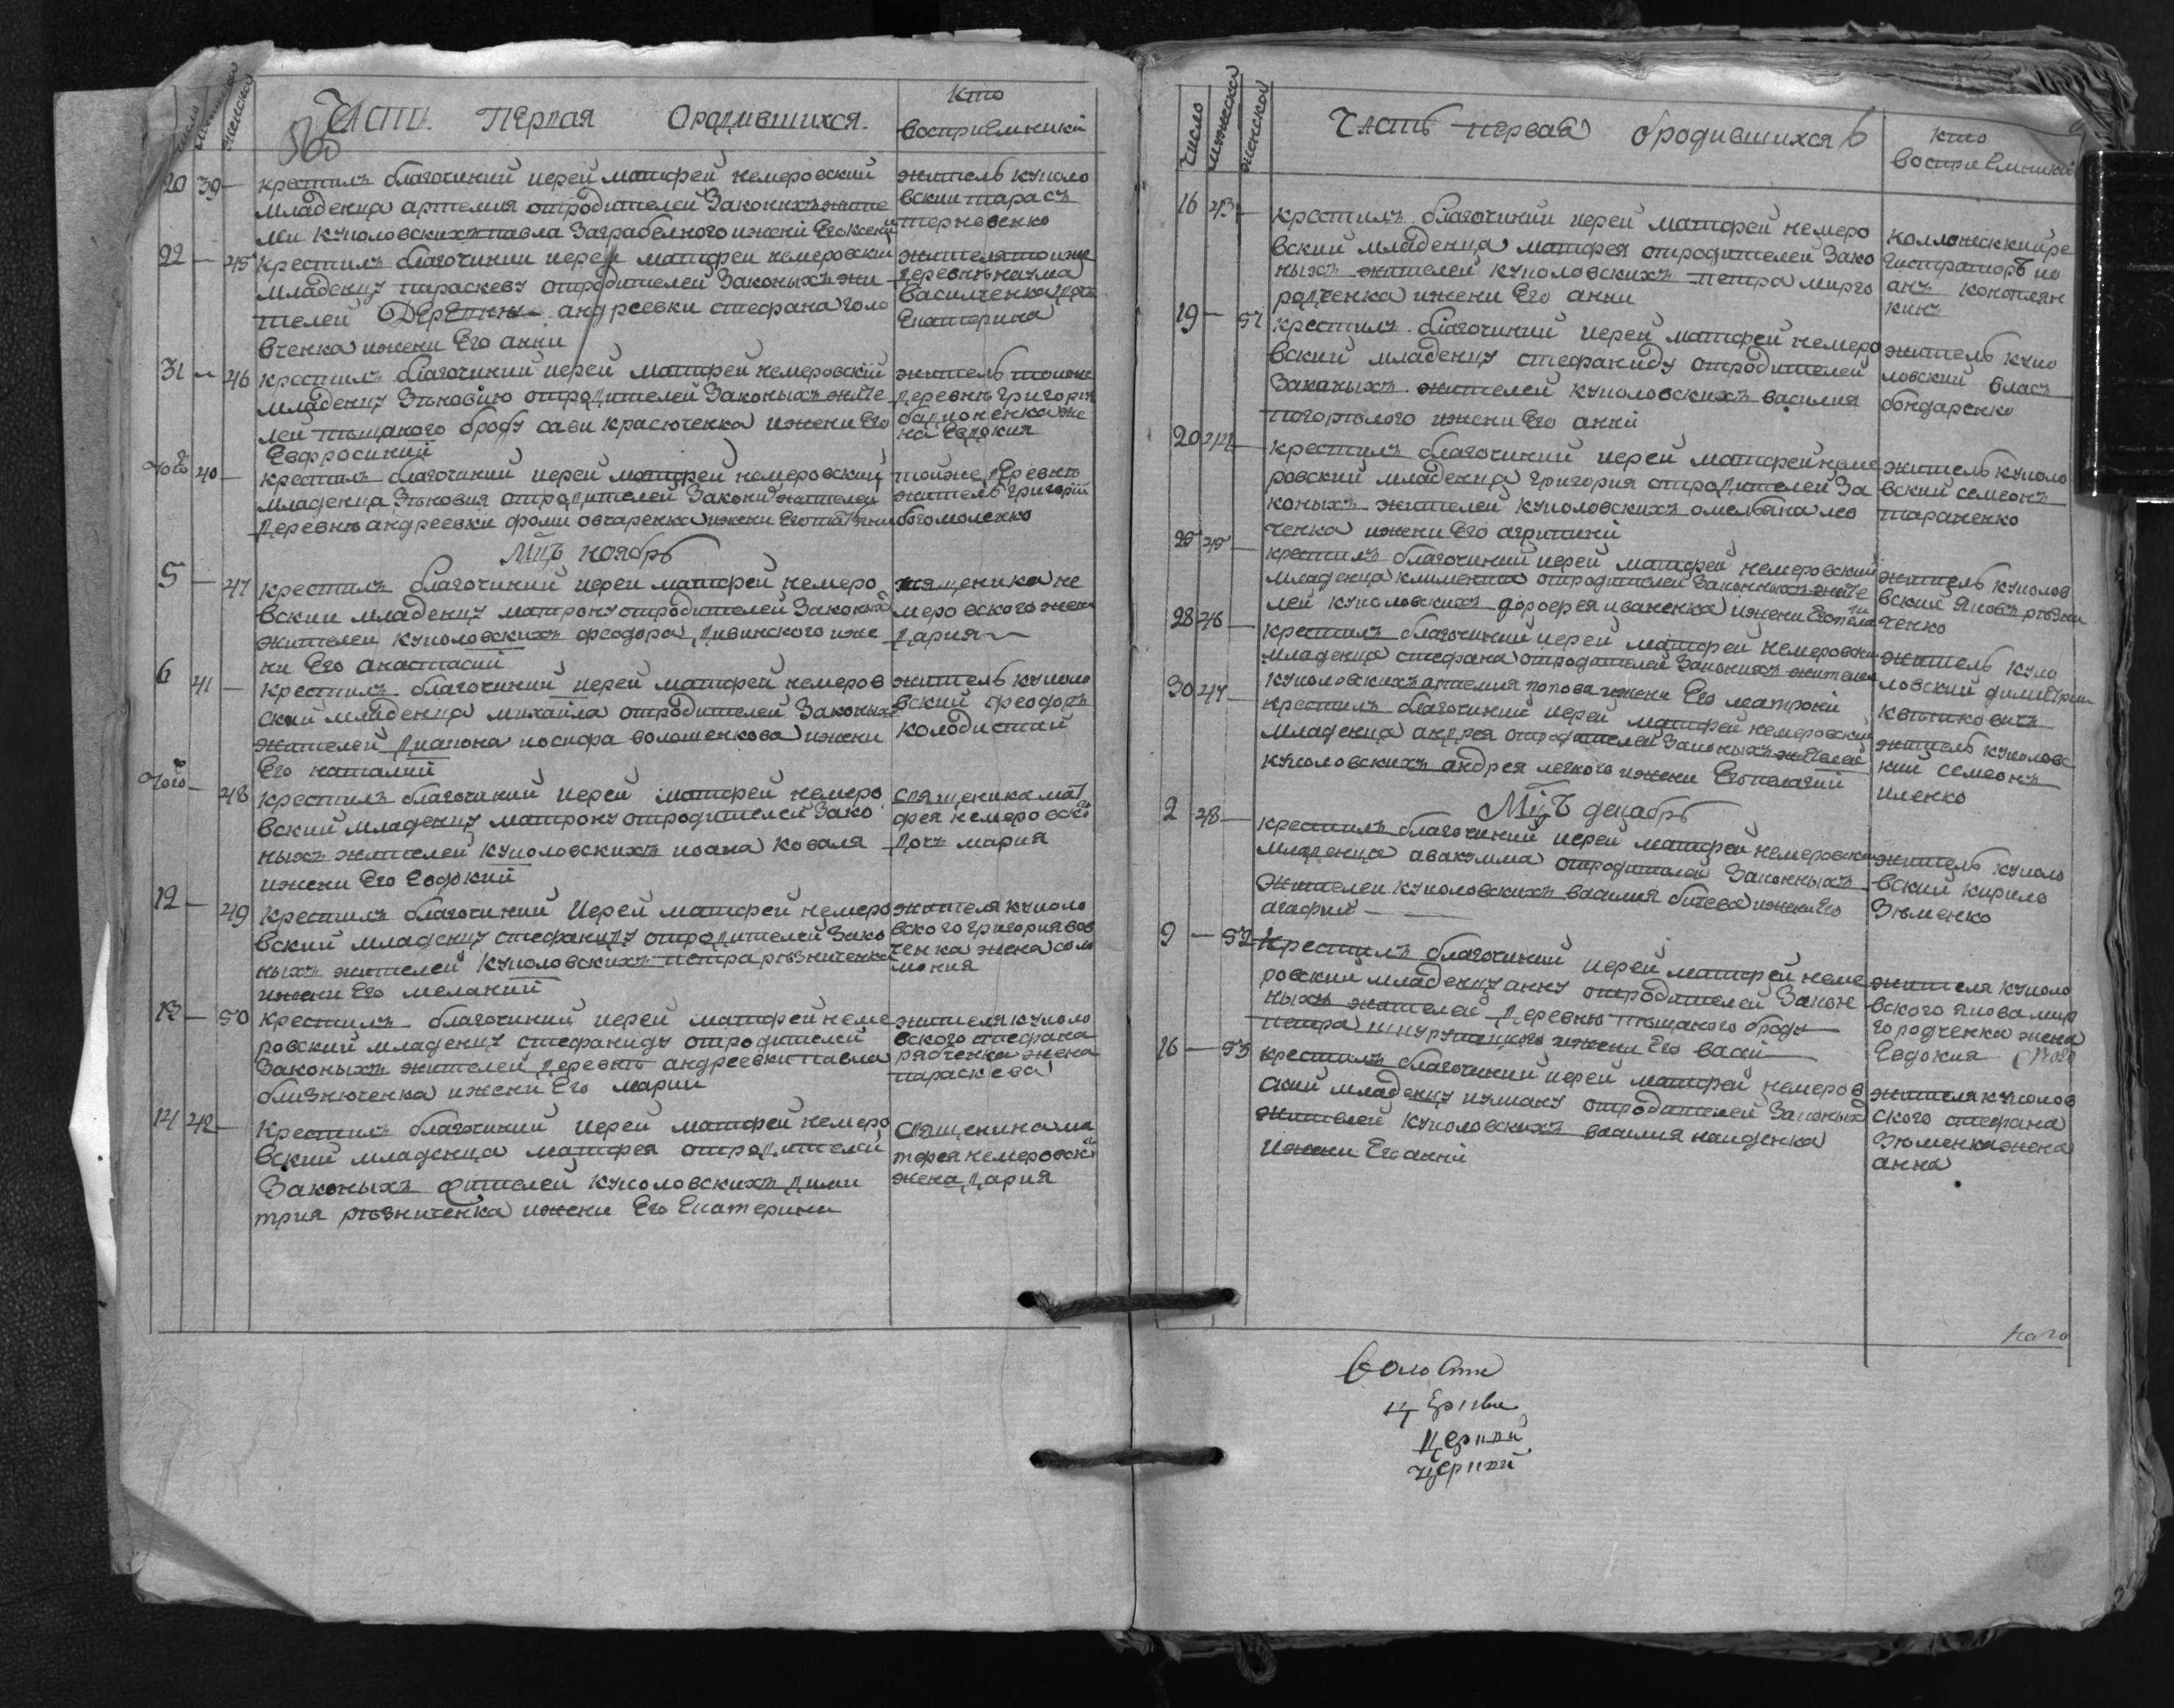 число
мужеска
женска
Часть первая о родившихся
кто
восприемники
20 39 — крестилъ благочиний иерей матфей немеровский
младенца артемия отродителей Законихъ жите
ли куполовскихъ павла Заграбелного ижени Его ксении
житель куполо
вский тарасъ
терновенко
22 — 45 крестилъ благочиний иерей матфей немеровский
младенцу параскеву отродителей Законыхъ жи
телей Деревни андреевки стефана голо
вченка ижени Его анни
жителя тоиже
деревни наума
василченка доч
Екатерина
31 — 46 крестилъ благочиний иерей матфей немеровский
младенцу Зѣновию отродителей Законыхъ жите
лей пѣщаного броду сави красюченка ижени Его
Евфросиний
житель тоиже
деревнѣ григория
жe
на Евдокия
тогож 40 — крестилъ благочиний иерей матфей немеровский
младенца Зѣновия отродителей Закони жителей
деревнѣ андреевки фоми овчаренка ижени Его
тойже деревнѣ
житель григорий
богомоленко
Мцъ ноябрь
5 — 47 крестилъ благочиний иерей матфей немеро
вский младенцу матрону отродителей Законый
жителей куполовскихъ феодора дивинского иже
ни Его анастасий
священика не
меровского жена
дария
6 41 — крестилъ благочиний иерей матфей немеров
ский младенца михаила отродителей Законыхъ
жителей диакона иосифа волошенкова ижени
Его наталий
житель куполо
вский феодоръ
колодистий
тогож — 48 крестилъ благочиний иерей матфей немеро
вский младенцу матрону отродителей Зако
ныхъ жителей куполовскихъ иоана коваля
ижени Его Евдокий
священика мат
фея немеровско
дочъ мария
12 — 49 крестилъ благочиний Иерей матфей немеро
вский младенцу стефаниду отродителей Зако
ныхъ жителей куполовскихъ петра рѣзниченка
ижени Его меланий
жителя куполо
вского григория вов
ченка жена соло
мония
13 — 50 крестилъ благочиний иерей матфей неме
ровский младенцу стефаниду отродителей
Законыхъ жителей деревнѣ андреевки павла
близнюченка ижени Его марии
жителя куполо
вского стефана
рябченка жена
параскева
14 42 — крестилъ благочиний иерей матфей немеро
вский младенца матфея отродителей
Законыхъ жителей куполовскихъ дими
трия рѣзниченка ижени Его Екатерини
священика ма
тфея немеровск
жена дария
число
мужеска
женска
Часть первая о родившихся
6
кто
восприемники
16 43 — крестилъ благочиний иерей матфей немеро
вский младенца матфея отродителей Зако
ныхъ жителей куполовскихъ петра мирго
родченка ижени Его анни
коллежский ре
гистраторъ ио
анъ коноплян
кинъ
19 — 51 крестилъ благочиний иерей матфей немеро
вский младенцу стефаниду отродителей
Законыхъ жителей куполовскихъ василия
погорѣлого ижени Его анни
житель купо
ловский власъ
бондаренко
20 44 — крестилъ благочиний иерей матфей неме
ровский младенца григория отродителей За
коныхъ жителей куполовскихъ омельяна лев
ченка ижени Его агрипини
житель куполо
вский семеонъ
тараненко
25 45 — крестилъ благочиний иерей матфей немеровский
младенца климента отродителей Законныхъ жите
лей куполовскихъ дорофея иваненка ижени Его
житель куполов
вский яковъ рѣзни
ченко
28 46 — крестилъ благочиний иерей матфей немеровский
младенца стефана отродителей Законихъ жителей
куполовскихъ артемия попова ижени Его матрони
житель купо
ловский димитрий
30 47 — крестилъ благочиний иерей матфей немеровский
младенца андрея отродителей Законыхъ жителей
куполовскихъ андрея легкого ижени Его пелагий
житель куполовс
кий семеонъ
иленко
Мцъ декабрь
2 48 — крестилъ благочиний иерей матфей немеровский
младенца авакумма отродителей Законныхъ
жителей куполовскихъ василия ижени Его
агафии —
житель куполо
вский кирило
Зѣменко
9 — 52 крестилъ благочиний иерей матфей неме
ровский младенцу анну отродителей Закон
ныхъ жителей деревнѣ пѣщаного броду
петра ижени Его васи
жителя куполо
вского якова мир
городченка жена
Евдокия
16 — 53 крестилъ благочиний иерей матфей немеров
ский младенцу отродителей Законых
жителей куполовскихъ василия найденка
ижени Его анни
жителя куполов
ского стефана
Зюменка жена
анна